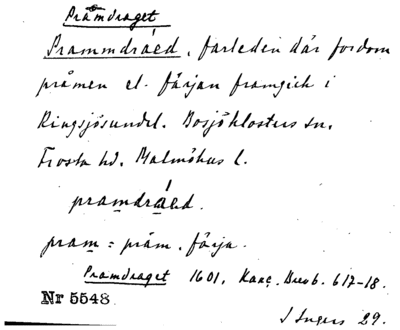 Pråmdraget
Prammdráed, farleden där fordom
pråmen el. färjan framgick i
Ringsjösundet. Bosjöklosters sn.
Frosta hd. Malmöhus l.
pramdráed.
pram = pråm, färja.
Pramdraget 1601, Kanc. Brevb. 617-18.
Nr 5548
J Ingers 29.